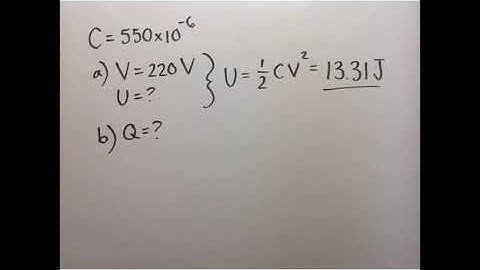 C = 550×10⁻⁶
a) V = 220 V
U = ?
} U = ½ CV² = 13.31 J
b) Q = ?